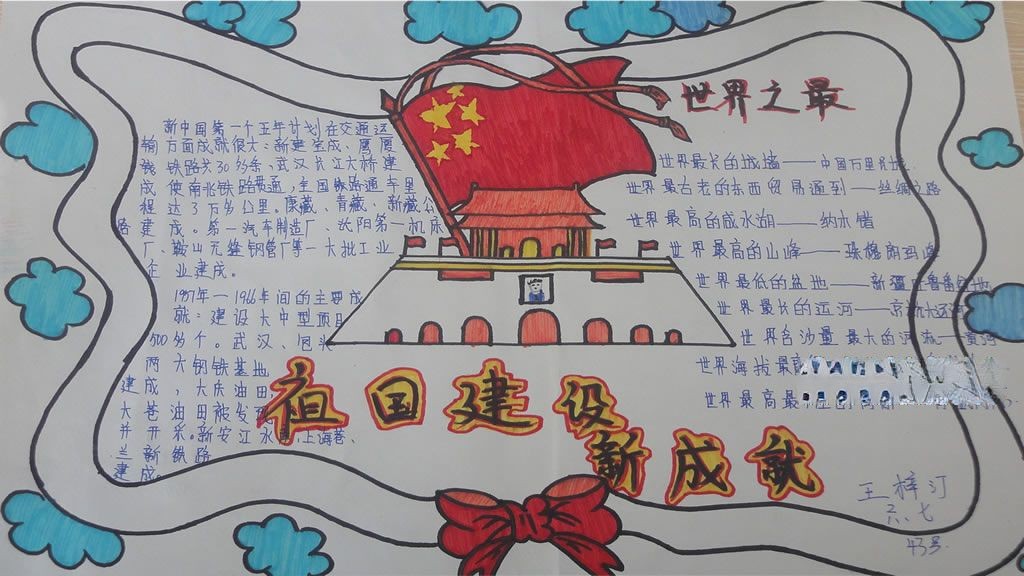 新中国第一个五年计划在交通运
输方面成就很大：新建宝成、鹰厦
铁路共30多条、武汉长江大桥建
成使南北铁路贯通，全国铁路通车里
程达3万多公里。康藏、青藏、新藏公
路建成。第一汽车制造厂、沈阳第一机床
厂、鞍山无缝钢管厂等一大批工业
企业建成。
1957年—1966年间的主要成
就：建设大中型项目
500多个。武汉、包头
两大钢铁基地
建成，大庆油田，
大巷油田被发现
并开采。新安江水 上海巷、
兰新铁路
建成。
世界之最
世界最长的城墙——中国万里长城
世界最古老的东西贸易通到——丝绸之路
世界最高的咸水湖——纳木错
世界最高的山峰——珠穆朗玛
世界最低的盆地——新疆吐鲁番盆地
世界最长的运河——京杭大运河
世界含沙量最大的河流——黄河
世界海拔最高
世界最高最
祖国建设
新成就
王梓汀
六、七
43号